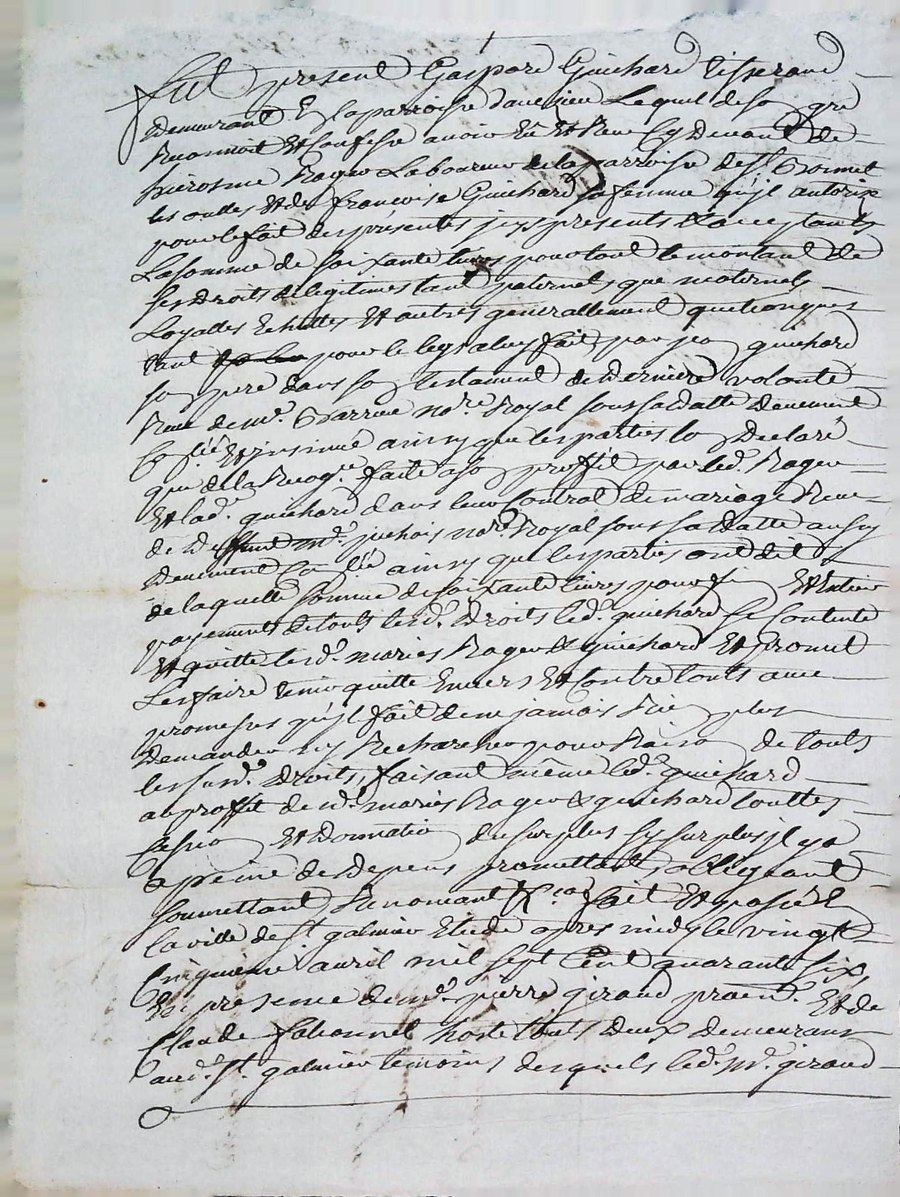 fut present Gaspard Guichard tisserand
demeurant en la parroisse d'aveizieu Lequel de son gré
Reconnoit et confesse avoir Eu et Receu Cy devant de
hierosme Rageu Laboureur de la parroisse de St Bonnet
les oulles et de francoise Guichard sa femme qu'jl autorize
pour le fait des presentes jcy presents et acceptants
La somme de soixante livres pour tout le montant de
ses droits de legitimes tant paternels que maternels
Loyalles Echuttes et autres generallement quelconques
tant pour le legs a luy fait par jean guichard
son pere dans son testament de derniere volonté
Receu de me. no.re Royal sous sa datte deuement
Con.llé et insinué ainsy que les parties l'on declaré
que de la Recog.ce faite a son proffit par led. Rageu
Et lad. guichard dans leur Contrat de mariage Receu
de deffunt me. no.re Royal sous sa datte aussy
deuement Con.llé ainsy que les parties ont dit
de laquelle somme de soixante livres pour fin Et Entier
payement de touts lesd. droits led. guichard se Contente
Et quitte lesd. mariés Rageu et Guichard Et promet
Les faire tenir quitte Envers Et Contre touts avec
promesses qu'jl fait de ne jamais Rien plus
demander ny Rechercher pour Raison de touts
les susd. droits, faisant même led. guichard
au proffit desd. mariés Rageu et guichard touttes
Cession Et donnation du surplus sy surplus jl y a
a peine de depens promettant obligeant
soumettant Renonçant fait Et passé En
la ville de St. galmier Etude apres midy le vingt
Cinquieme avril mil sept Cent quarante six,
En presence de me. pierre girand Et de
Claude hoste touts deux demeurans
aud. St. galmier temoins desquels led. me. girand